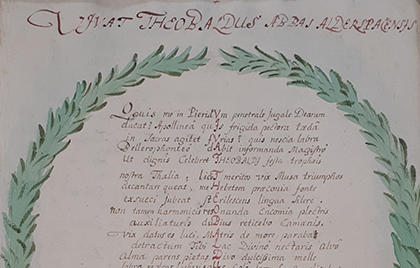 VIVAT THEOBALDUS ABBAS ALDERSPACENSIS
Quis me in Pierii Vum penetrale jugale Dearum
ducat? Apollinea quIs frigida pectora tæda
in Sacros agitet Vrias? quis nescia labra
Bellerophonteo dAbit informanda Magistro
Ut dignis Celebret THEOBALDI festa tropheis
nostra Thalia, licT merito vix Musa triumphos
decantare queat, me Hebetem præconia fonte
exsucci jubeat stErilescens lingua silere.
non tamen harmonicis rOmanda Encomia plectris
auxiliaturis duBius reticebo Camænis.
via datus es luci MAtris de more parabat
detractum Tibi Lac Divino nectaris Alvo
Alma parens pietas DIvo dulcissima melle